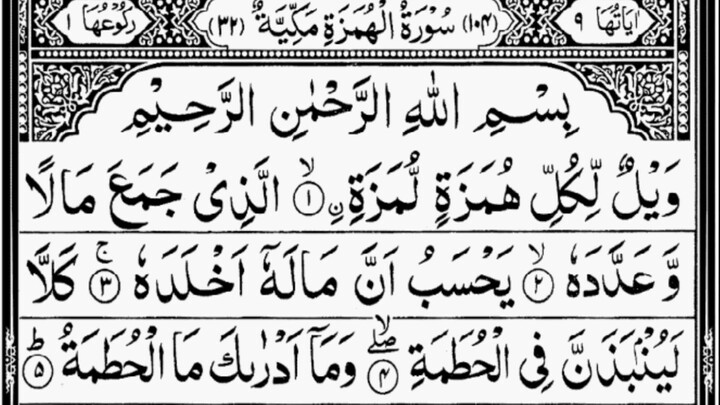 اٰیَاتُهَا ٩ (١٠٤) سُوْرَةُ الْهُمَزَةِ مَكِّیَّةٌ (٣٢) رُكُوْعُهَا ١
بِسْمِ اللّٰهِ الرَّحْمٰنِ الرَّحِیْمِ
وَیْلٌ لِّكُلِّ هُمَزَةٍ لُّمَزَةِ ۙ﴿١﴾ نِ الَّذِیْ جَمَعَ مَالًا
وَّعَدَّدَهٗ ۙ﴿٢﴾ یَحْسَبُ اَنَّ مَالَهٗۤ اَخْلَدَهٗ ۚ﴿٣﴾ كَلَّا
لَیُنْۢبَذَنَّ فِی الْحُطَمَةِ ۖۙ﴿٤﴾ وَمَاۤ اَدْرٰىكَ مَا الْحُطَمَةُ ؕ﴿٥﴾